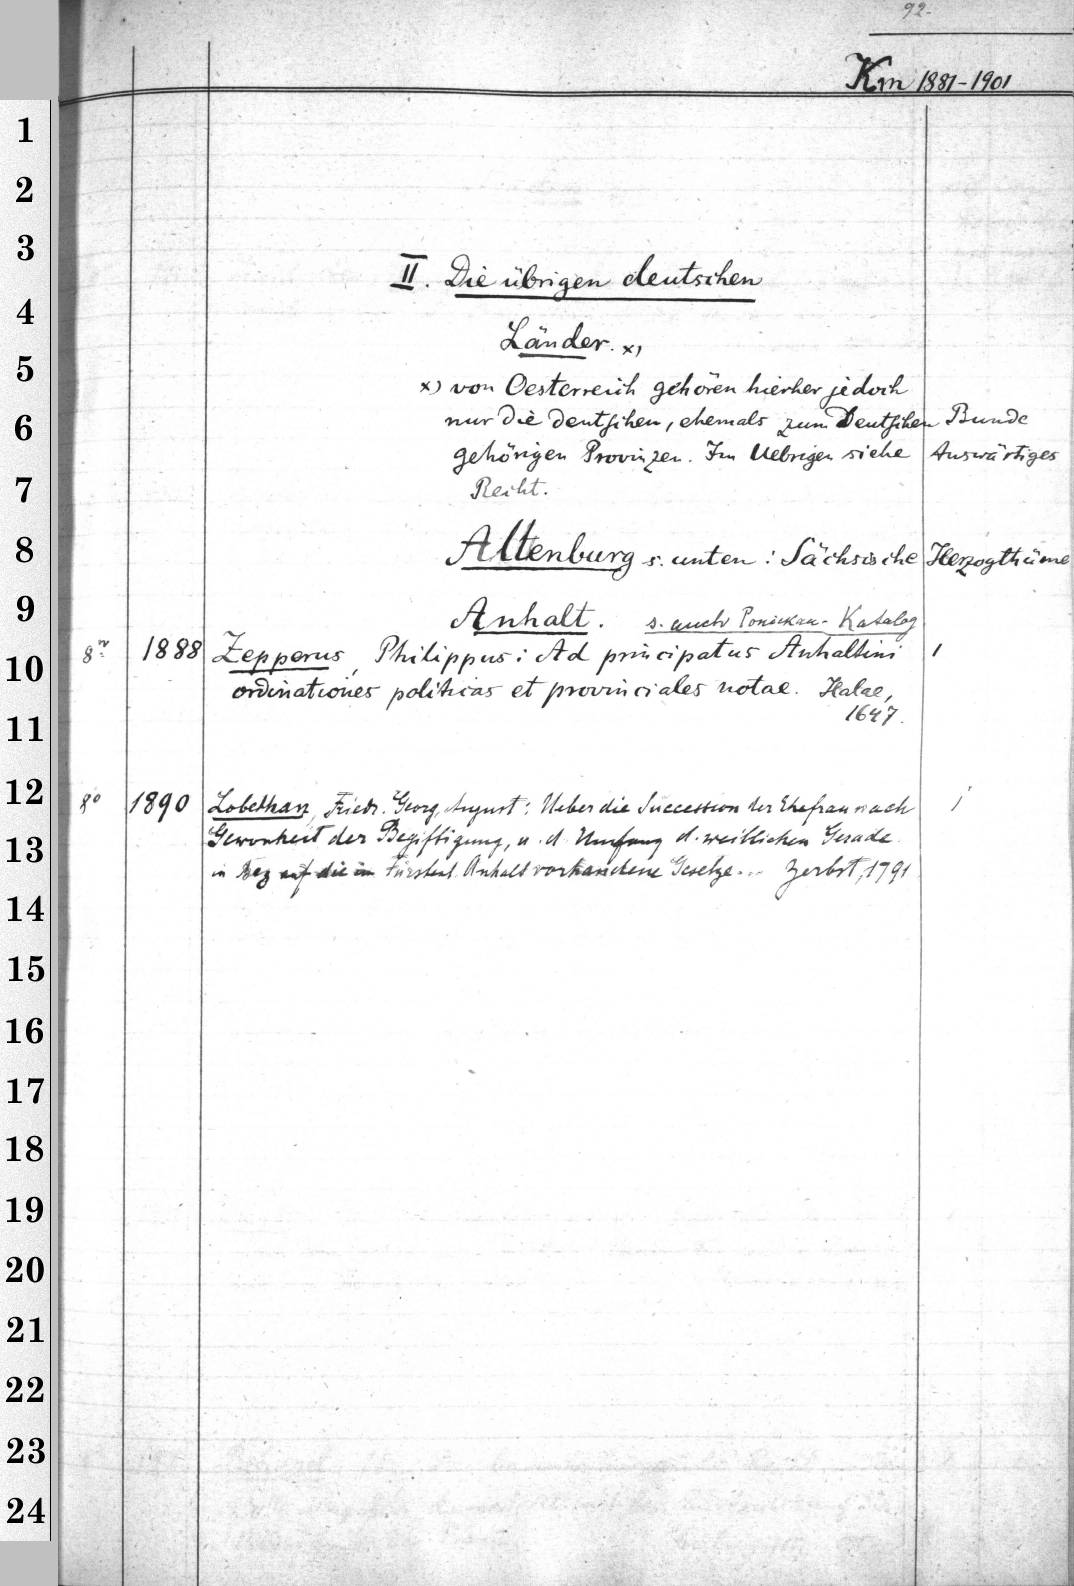 92.
Km 1881-1901
II. Die übrigen deutschen
Länder. x)
x) von Oesterreich gehören hierher jedoch
nur die deutschen, ehemals zum Deutschen Bunde
gehörigen Provinzen. Im Uebrigen siehe Auswärtiges
Recht.
Altenburg s. unten: Sächsische Herzogthüme
Anhalt. s. auch Ponickau-Katalog
8° 1888 Zepperus, Philippus: Ad principatus Anhaltini 1
ordinationes politicas et provinciales notae. Halae,
1647.
8° 1890 Lobethan, Friedr. Georg August: Ueber die Succession der Ehefrau nach 1
Gewonheit der Begiftigung, u. d. Umfang d. weiblichen Gerade
in Bez auf die im Fürstent. Anhalt vorhandene Gesetze... Zerbst, 1791
1
2
3
4
5
6
7
8
9
10
11
12
13
14
15
16
17
18
19
20
21
22
23
24